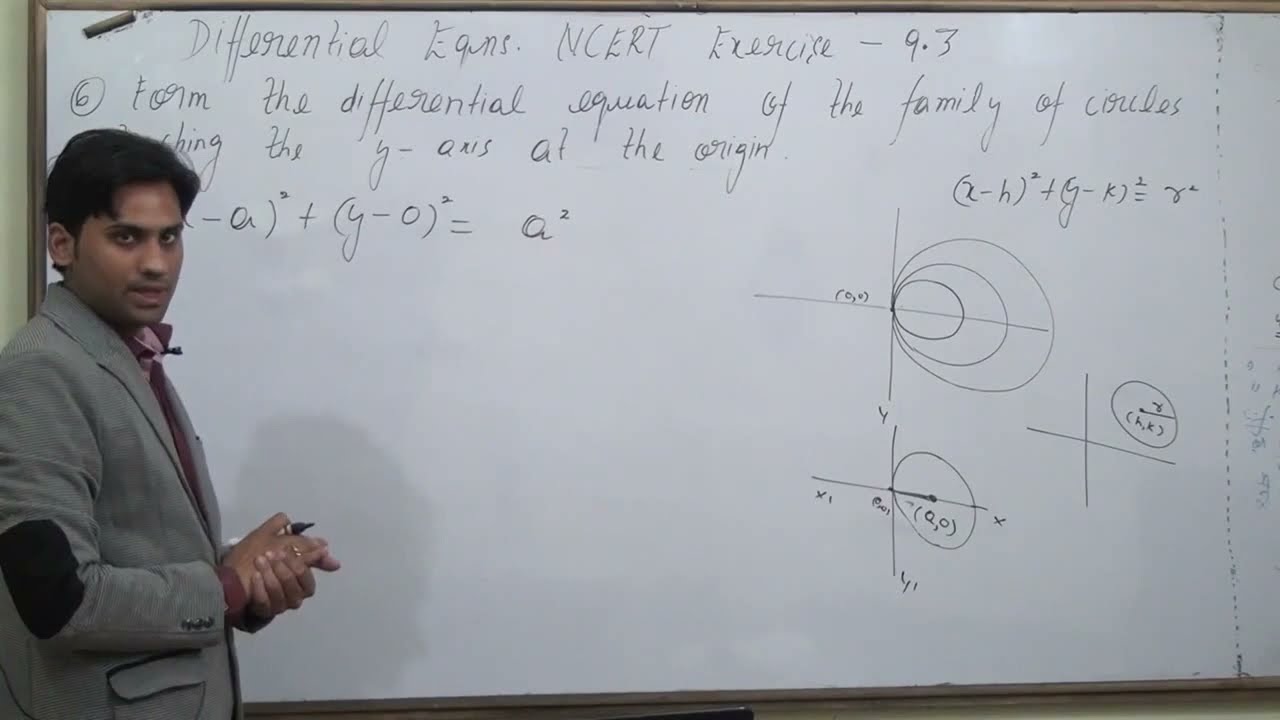 Differential Eqns. NCERT Exercise - 9.3
⑥ Form the differential equation of the family of circles
ching the y-axis at the origin.
(x-h)² + (y-k)² = r²
- a)² + (y-0)² = a²
(0,0)
y
r
(h,k)
x₁
(a,0)
x
y₁